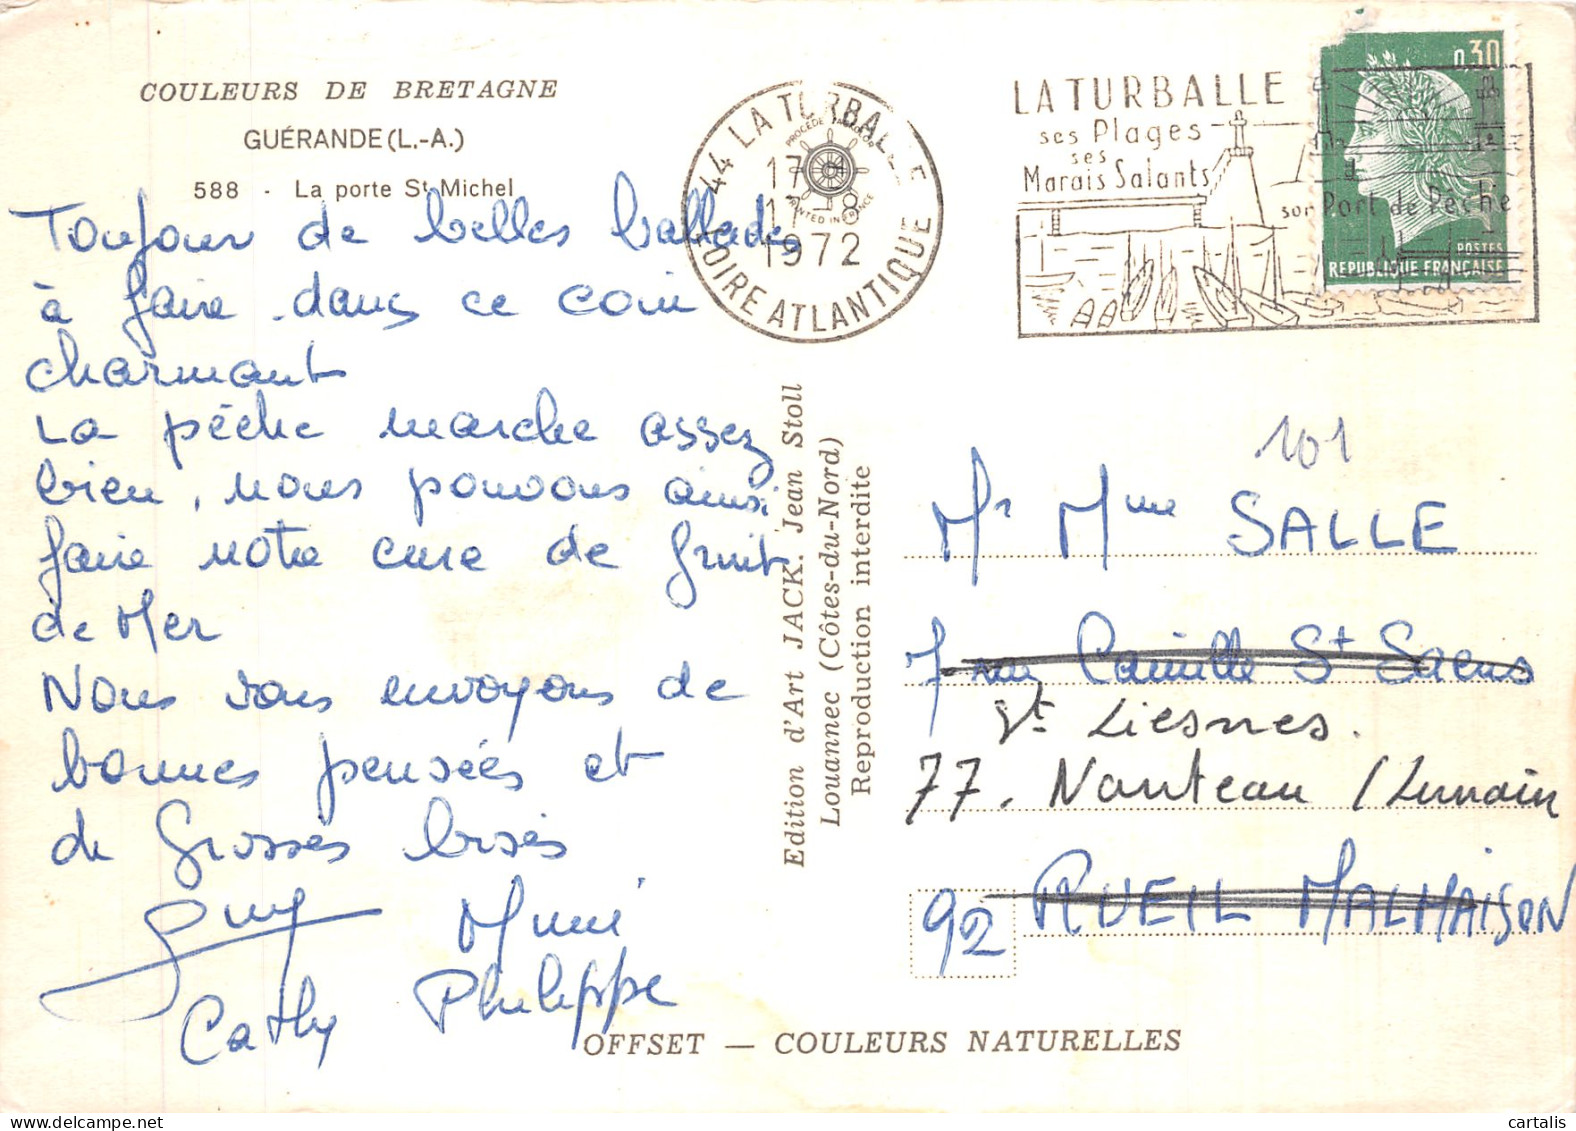 COULEURS DE BRETAGNE
GUÉRANDE (L.-A.)
588 - La porte St Michel
Toujour de belles ballades
à faire dans ce coin
charmant
La pêche marche assez
bien, nous pouvons ainsi
faire notre cure de fruit
de Mer
Nous vous envoyons de
bonnes pensées et
de Grosses bises
Guy Mimi
Cathy Philippe
44 LA TURBALLE
LOIRE ATLANTIQUE
17 H
11-8
1972
PRINTED IN FRANCE
LA TURBALLE
ses Plages
ses
Marais Salants
son Port de Pêche
0,30
POSTES
REPUBLIQUE FRANÇAISE
Edition d'Art JACK. Jean Stoll
Louannec (Côtes-du-Nord)
Reproduction interdite
101
Mr Mme SALLE
7 rue Camille St Saens
St Liesnes.
77. Nanteau / Lunain
92 RUEIL MALMAISON
OFFSET — COULEURS NATURELLES
cartalis